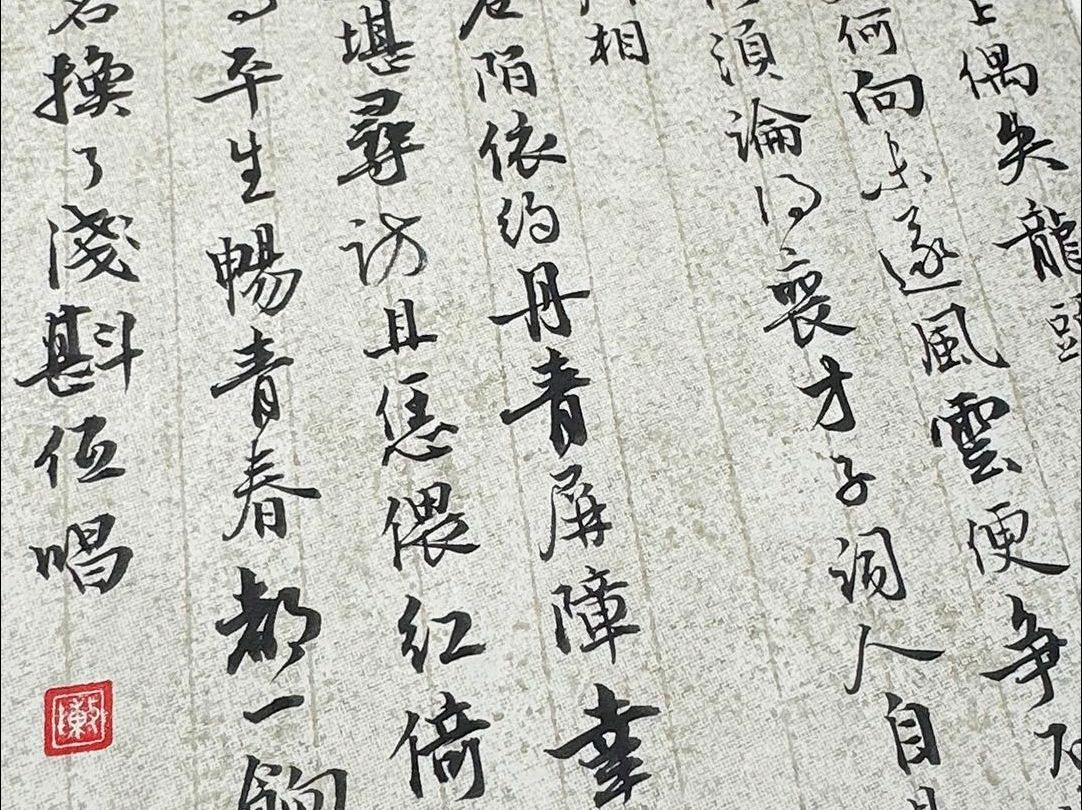 上偶失龍頭
何向未遂風雲便爭不
須論得喪才子詞人自
相
陌依約丹青屏障幸
堪尋訪且恁偎紅倚
平生暢青春都一餉
名換了淺斟低唱